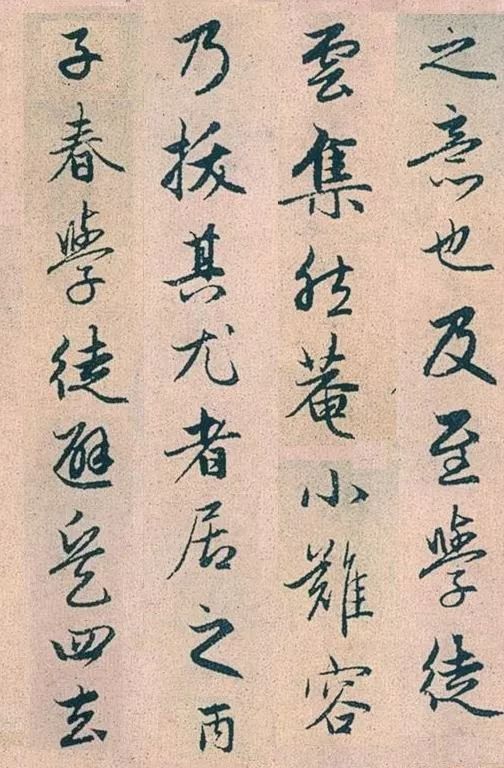 之意也及至學徒
雲集然菴小難容
乃拔其尤者居之丙
子春學徒避兵四去